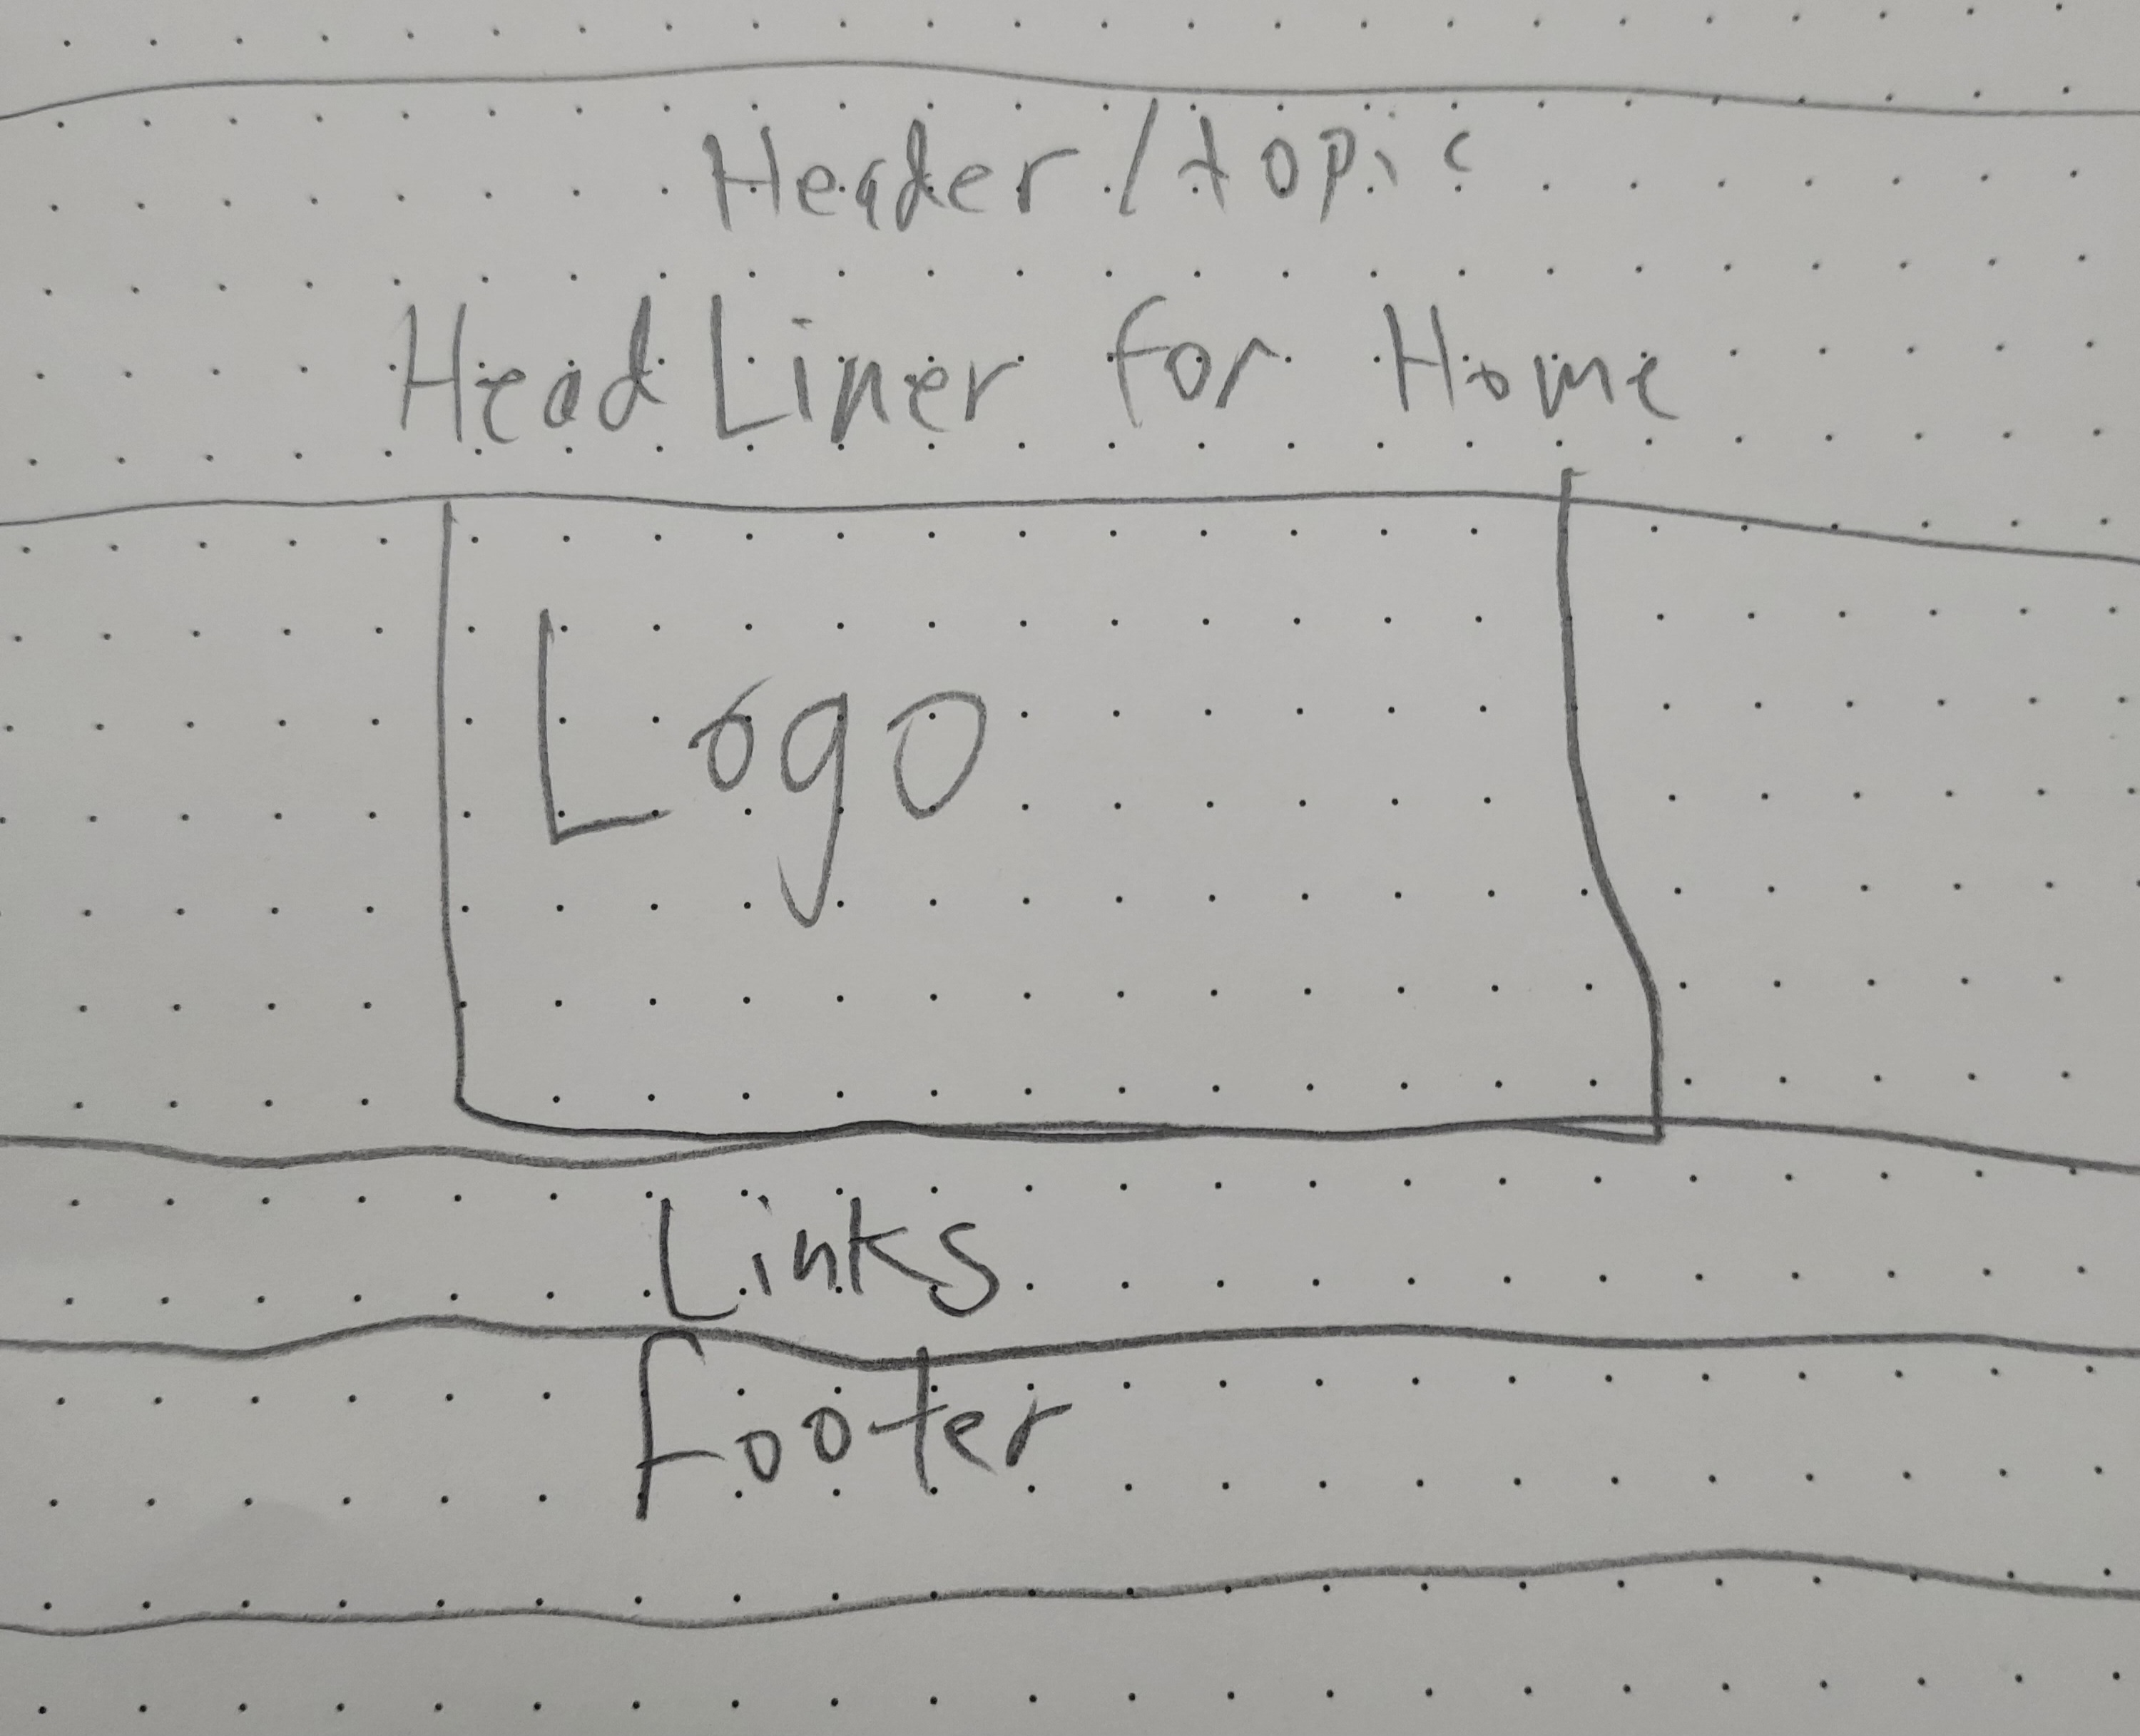 Header/topic
HeadLiner for Home
Logo
Links
footer